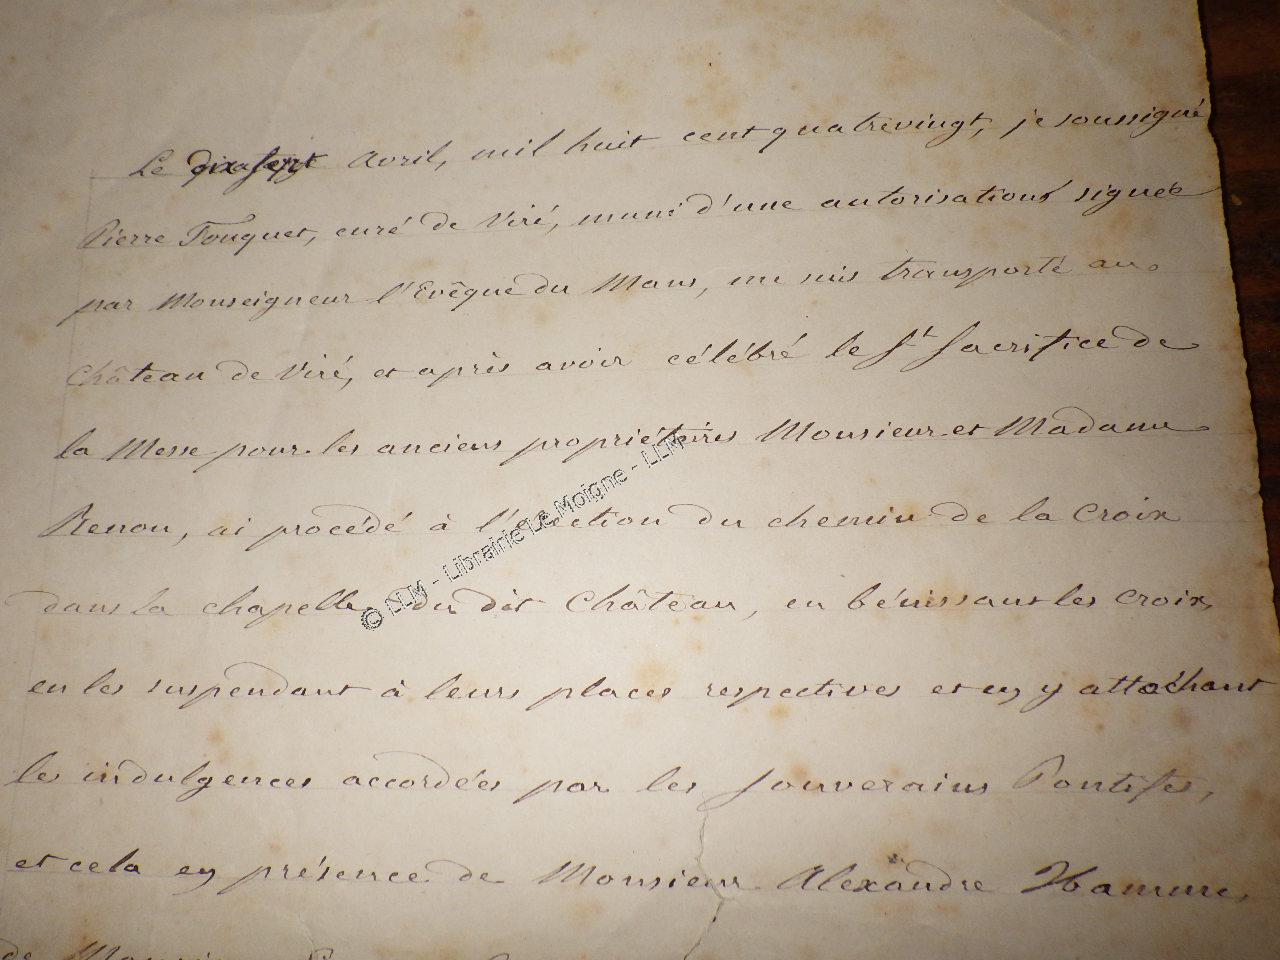 Le dix sept avril, mil huit cent quatrevingt, je soussigné
Pierre Fouquet, curé de Viré, muni d'une autorisation signée
par Monseigneur l'Evêque du Mans, me suis transporté au
Château de Viré, et après avoir célébré le St Sacrifice de
la Messe pour les anciens propriétaires Monsieur et Madame
Renou, ai procédé à l'érection du chemin de la Croix
dans la chapelle du dit Château, en bénissant les Croix,
en les suspendant à leurs places respectives et en y attachant
les indulgences accordées par les Souverains Pontifes,
et cela en présence de Monsieur Alexandre
de Monsieur
© LLM - Librairie Le Moigne - LLM